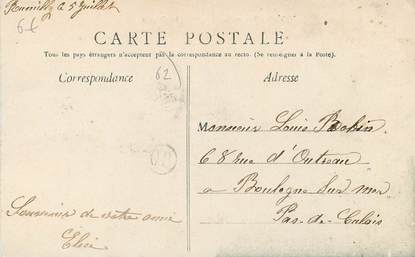 Rumilly le 5 Juillet
6€
CARTE POSTALE
Tous les pays étrangers n'acceptent pas la correspondance au recto. (Se renseigner à la Poste).
Correspondance
62
Adresse
Monsieur Louis
68 rue d'Outreau
a Boulogne Sur mer
Pas-de-Calais
Souvenir de votre amie